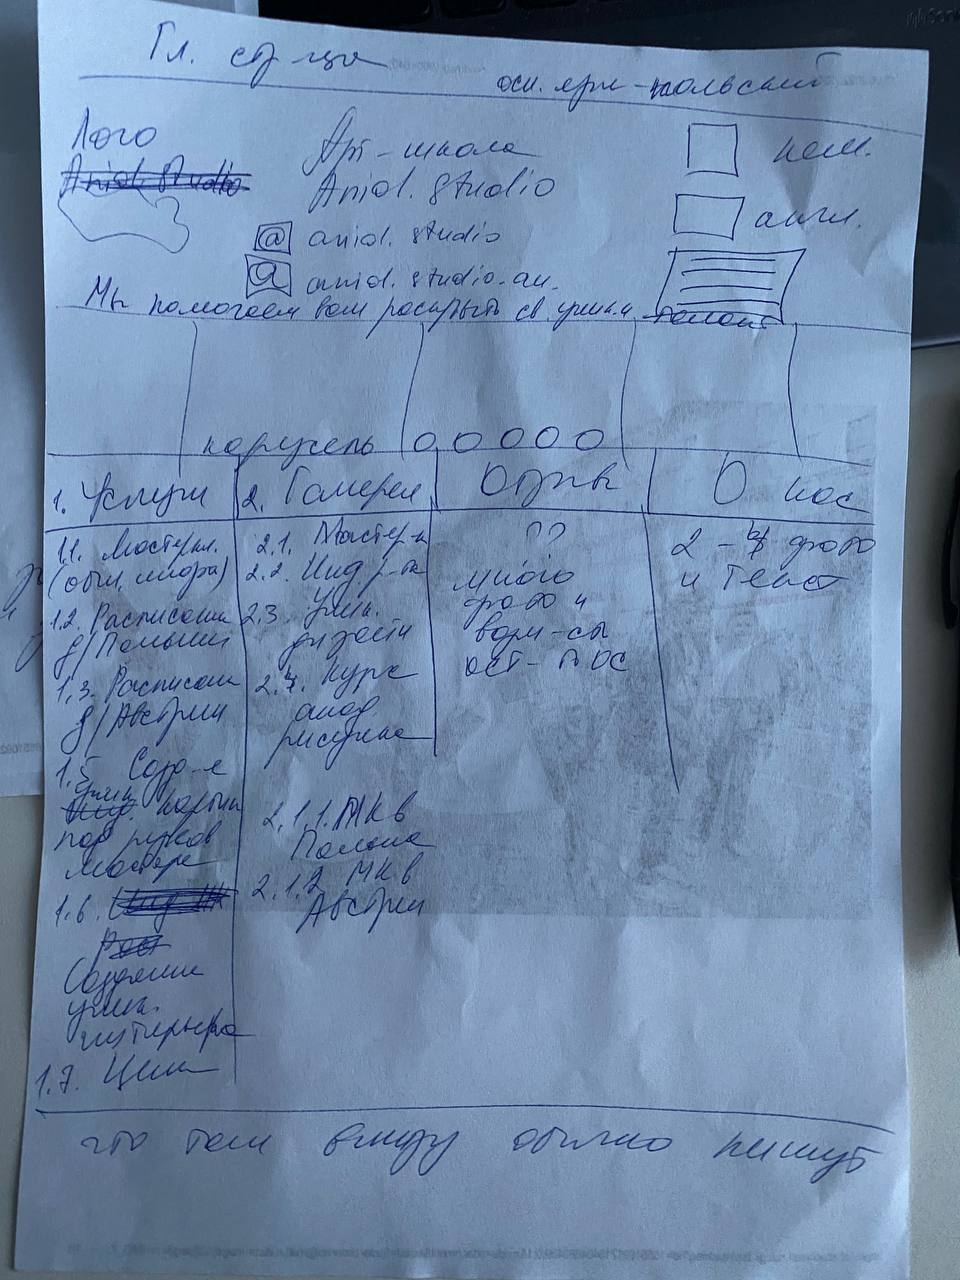 Гл. стр-ца
осн. ярл-польский
Лого
Арт-школа
нем.
Aniol Studio
Aniol. studio
англ.
@ aniol. studio
@ aniol. studio. au.
Мы помогаем вам раскрыть св. уник.
талант
карусель
1. Услуги
2. Галерея
Отзывы
О нас
1.1. Мастеркл.
(опыт,
1.2. Расписание
д/Польши
1.3. Расписан
д/Австрии
1.5 Созд-е
уник. картин
под руков
мастера
1.6.
Создание
уник.
интерьера
1.7. Цены
2.1. Мастер-к
2.2. Инд р-та
2.3. Уник.
2.4. Курс
акад
рисунка
2.1.1. МК в
Польше
2.1.2 МК в
Австрии
??
много
фото и
вопр-сы
ост-
2 - 4 фото
и текст
что там внизу обычно пишут